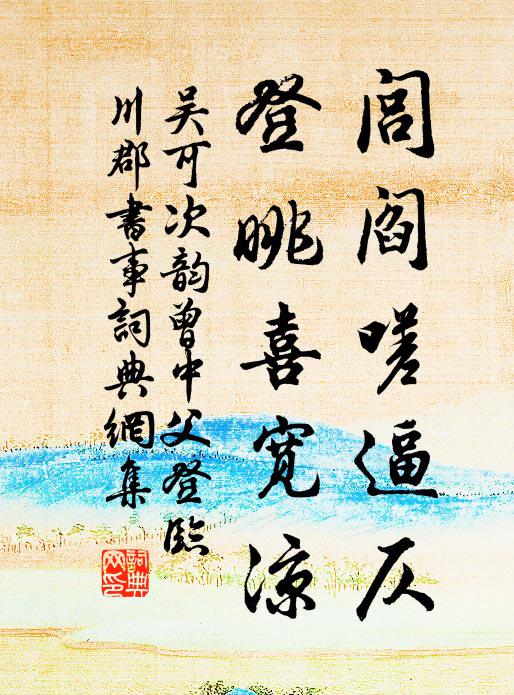 閭閻嗟逼仄
登眺喜寬凉
吴可次韵曾中父登臨
川郡書事詞典網集
詞典网印